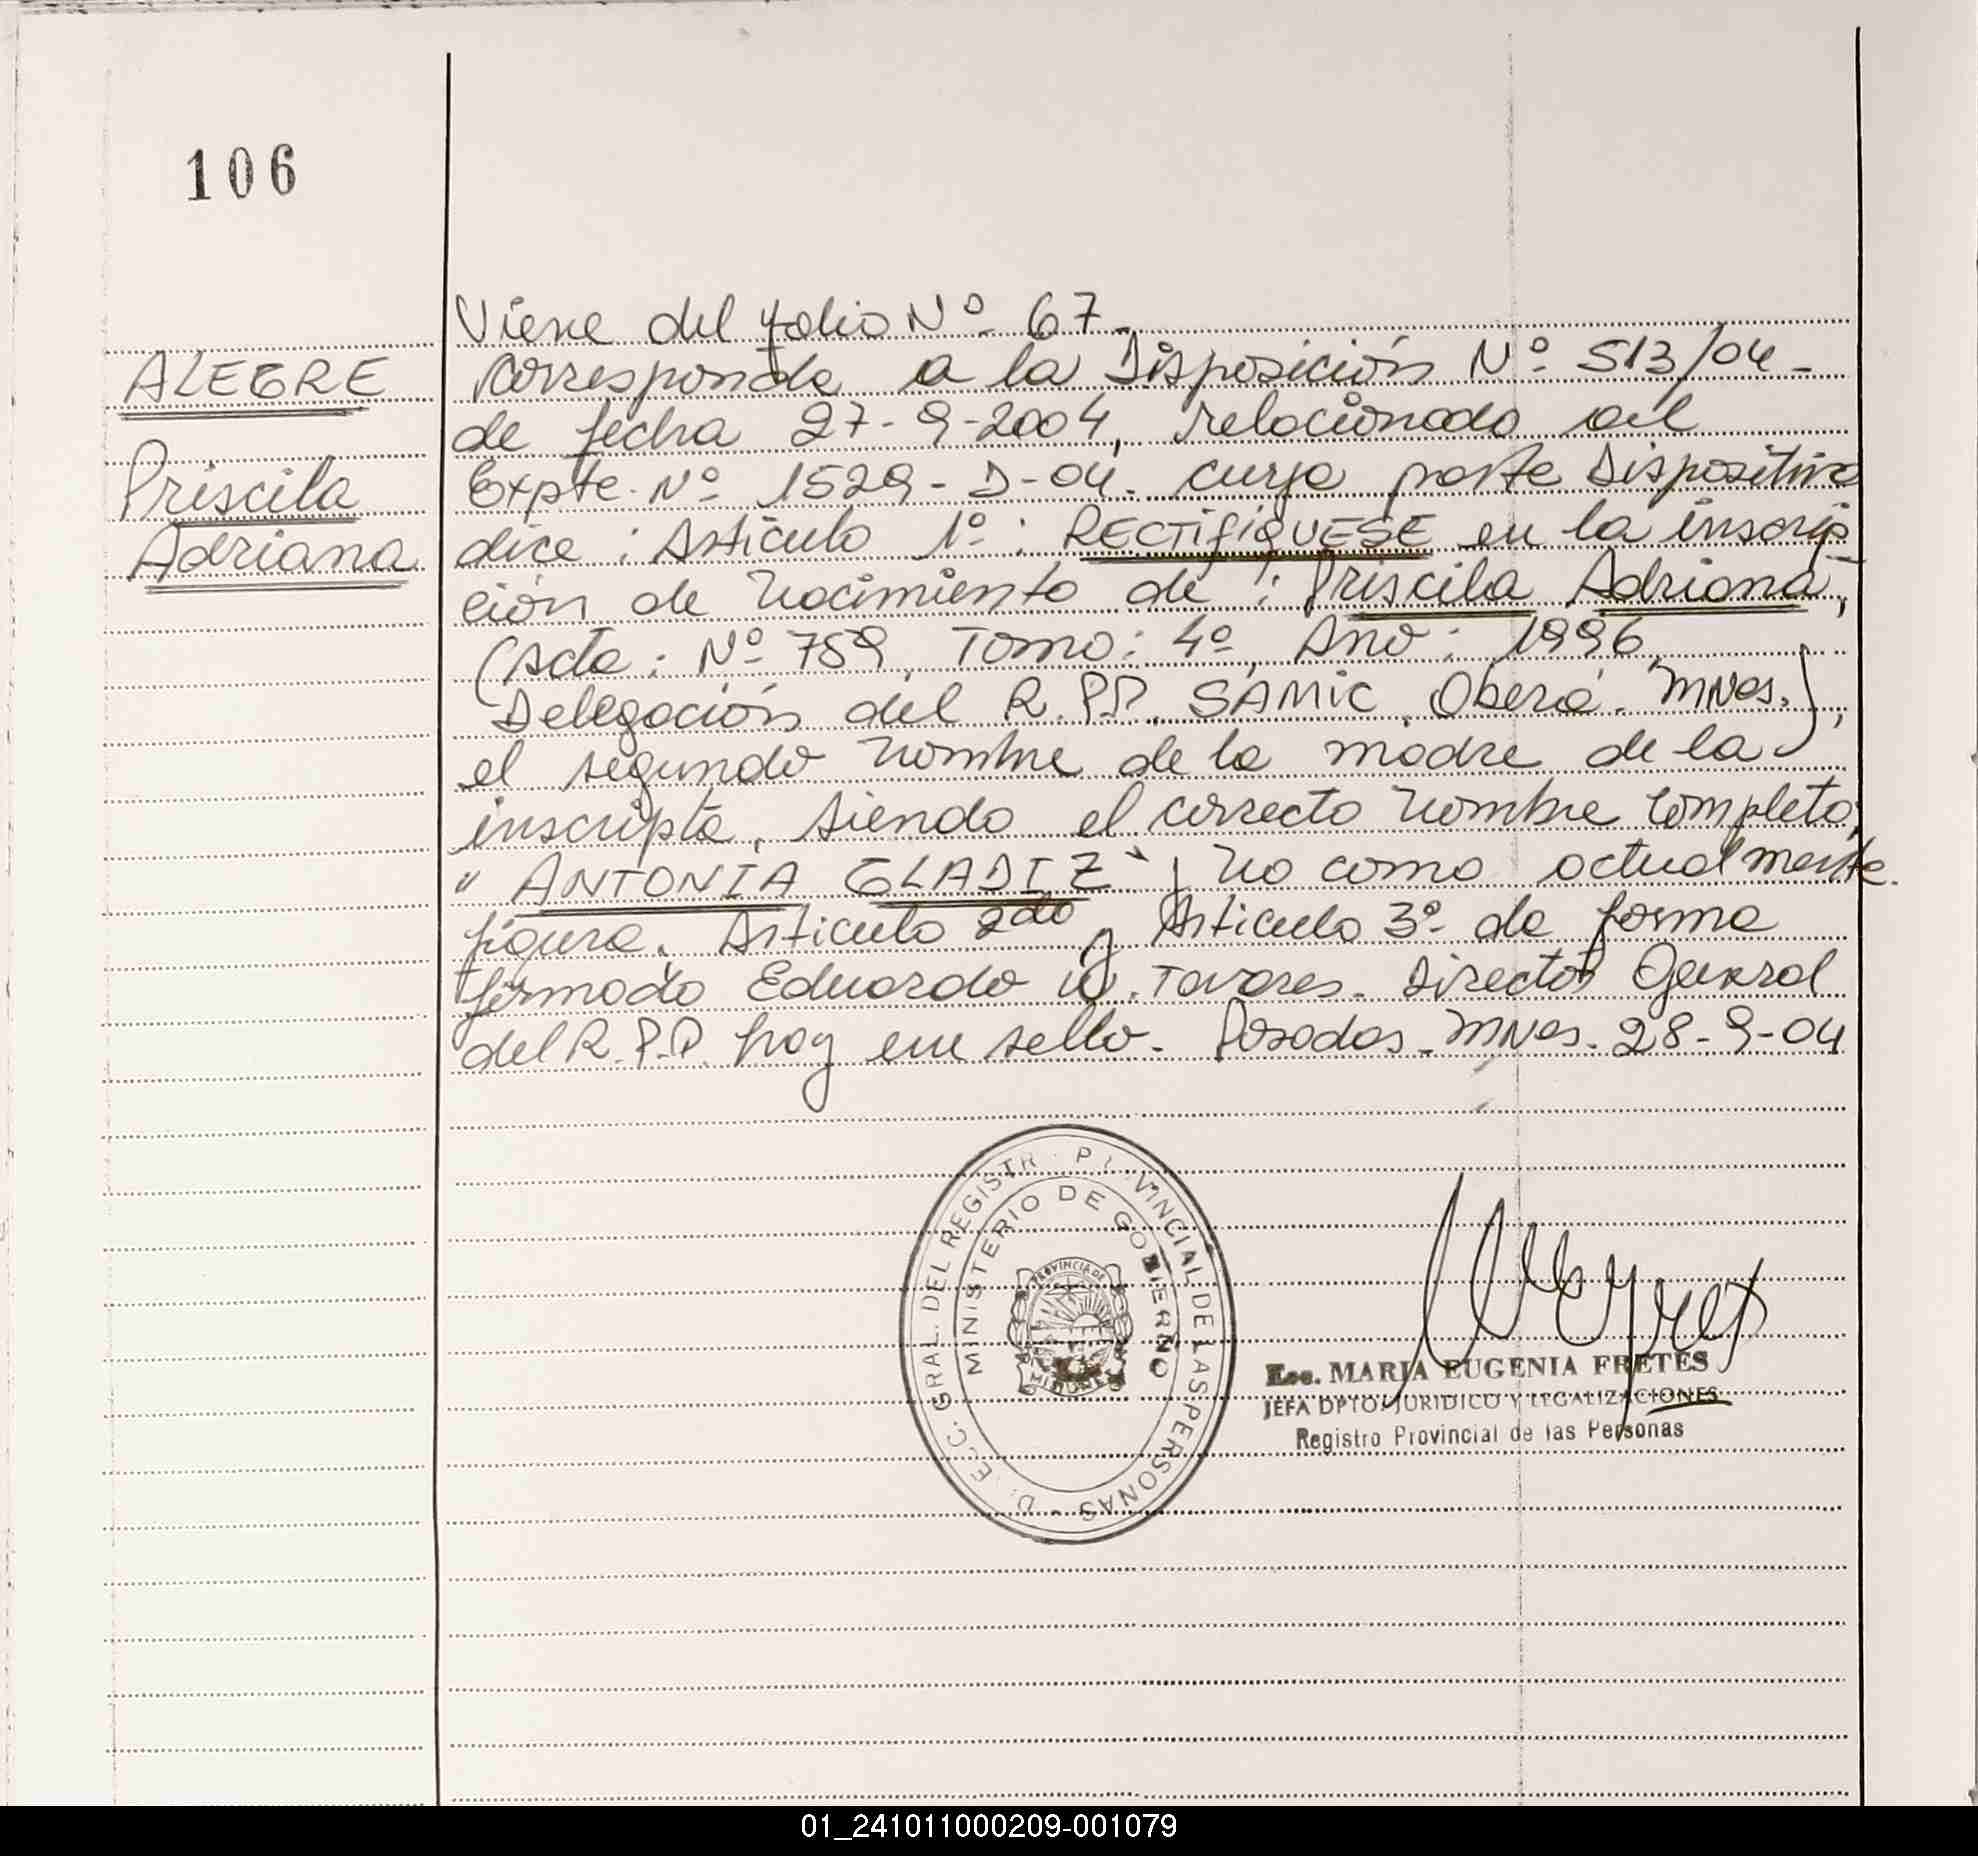 106
ALEGRE
Priscila
Adriana
Viene del folio Nº 67.
Corresponde a la Disposición Nº 513/04-
de fecha 27-9-2004, relacionado al
Expte. Nº 1529-D-04. cuya parte Dispositiva
dice: Artículo 1º: RECTIFIQUESE en la inscrip
ción de nacimiento de: Priscila Adriana,
(Acta: Nº 759, Tomo: 4º, Ano: 1996,
Delegación del R.P.P. SAMIC. Oberá. MNes.),
el segundo nombre de la madre de la
inscripta, siendo el correcto nombre completo;
" ANTONIA GLADIZ" y no como actualmente
figura. Articulo 2do y Articulo 3º de forma
firmado Eduardo W. Tavares. Director General
del R.P.P. hay un sello. Posadas. MNes. 28-9-04
DIRECC. GRAL. DEL REGISTRO PROVINCIAL DE LAS PERSONAS -
MINISTERIO DE GOBIERNO
PROVINCIA DE
MISIONES
Esc. MARIA EUGENIA FRETES
JEFA DPTO. JURIDICO Y LEGALIZACIONES
Registro Provincial de las Personas
01_241011000209-001079